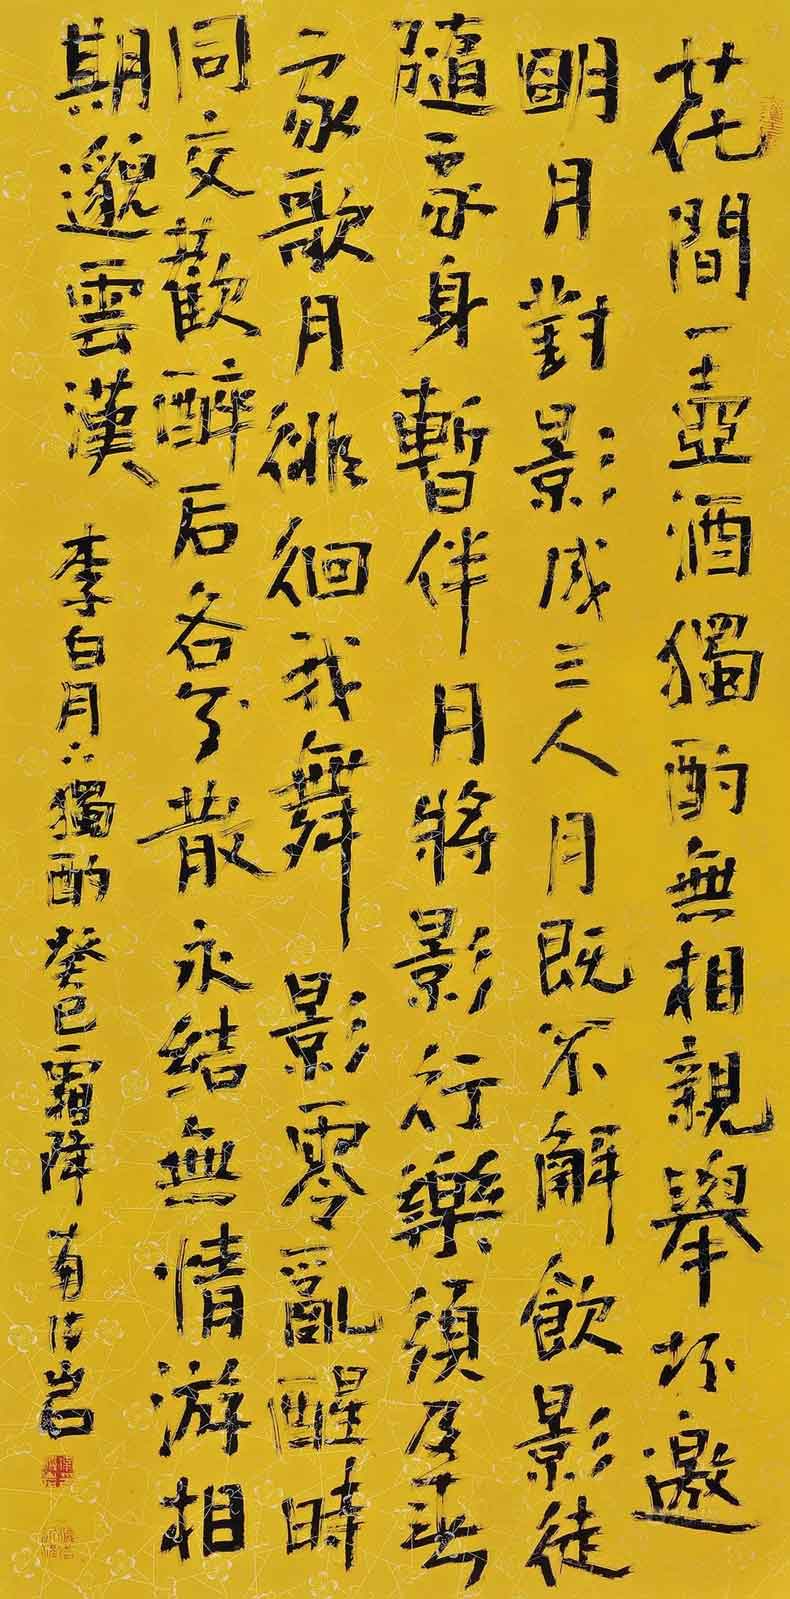 花間一壺酒獨酌無相親舉杯邀
明月對影成三人月既不解飲影徒
隨我身暫伴月將影行樂須及春
我歌月徘徊我舞影零亂醒時
同交歡醉后各分散永結無情游相
期邈雲漢 李白月下獨酌 癸巳霜降